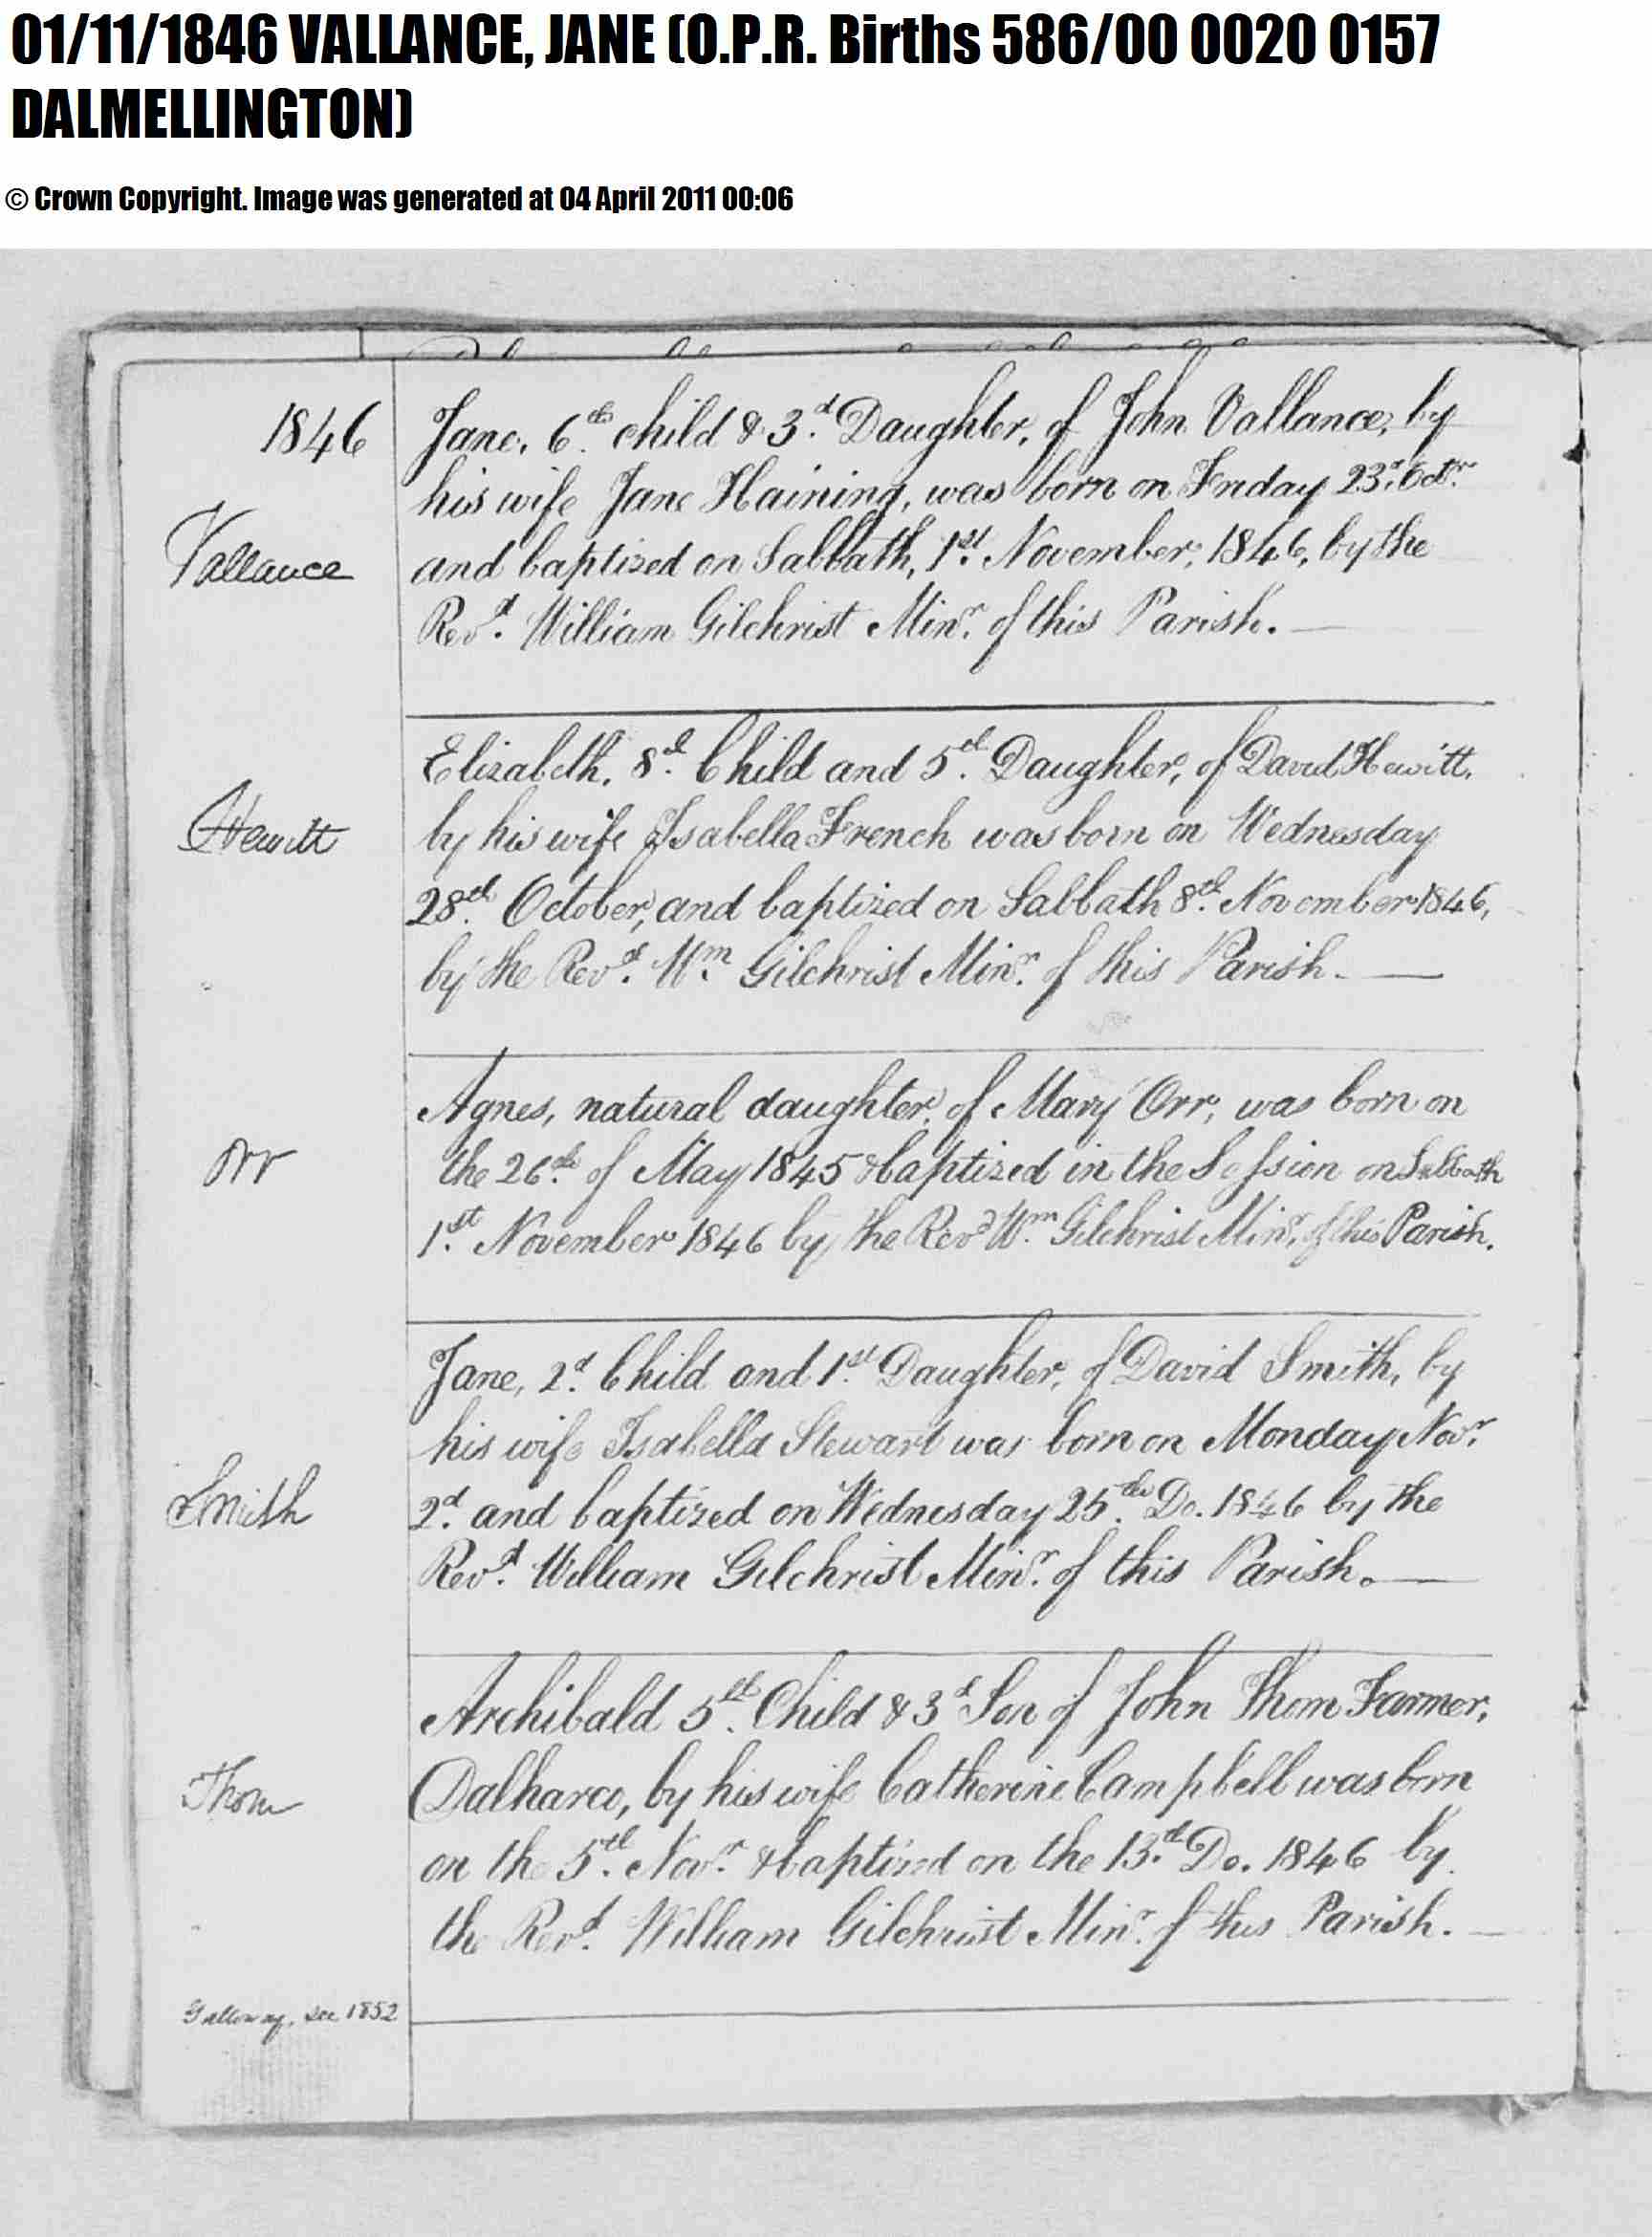 01/11/1846 VALLANCE, JANE (O.P.R. Births 586/00 0020 0157
DALMELLINGTON)
© Crown Copyright. Image was generated at 04 April 2011 00:06
1846
Jane, 6th child & 3d Daughter, of John Vallance, by
his wife Jane Haining, was born on Friday 23d Octr
Vallance
and baptized on Sabbath, 1st November, 1846, by the
Revd. William Gilchrist Minr. of this Parish.
Elizabeth, 8th Child and 5th Daughter, of David Hewitt,
Hewitt
by his wife Isabella French was born on Wednesday
28th October, and baptized on Sabbath 8th November 1846,
by the Revd. Wm. Gilchrist Minr. of this Parish.
Agnes, natural daughter, of Mary Orr, was born on
Orr
the 26th of May 1845 & baptized in the Session on Sabbath
1st November 1846 by the Revd Wm Gilchrist Minr. of this Parish.
Jane, 2d Child and 1st Daughter, of David Smith, by
his wife Isabella Stewart was born on Monday Novr.
Smith
2d. and baptized on Wednesday 25th Do. 1846 by the
Revd. William Gilchrist Minr. of this Parish.
Archibald 5th Child & 3d Son of John Thom Farmer,
Thom
Dalharco, by his wife Catherine Campbell was born
on the 5th Novr & baptized on the 13th Do. 1846 by
the Revd. William Gilchrist Minr. of this Parish.
Galloway, see 1852